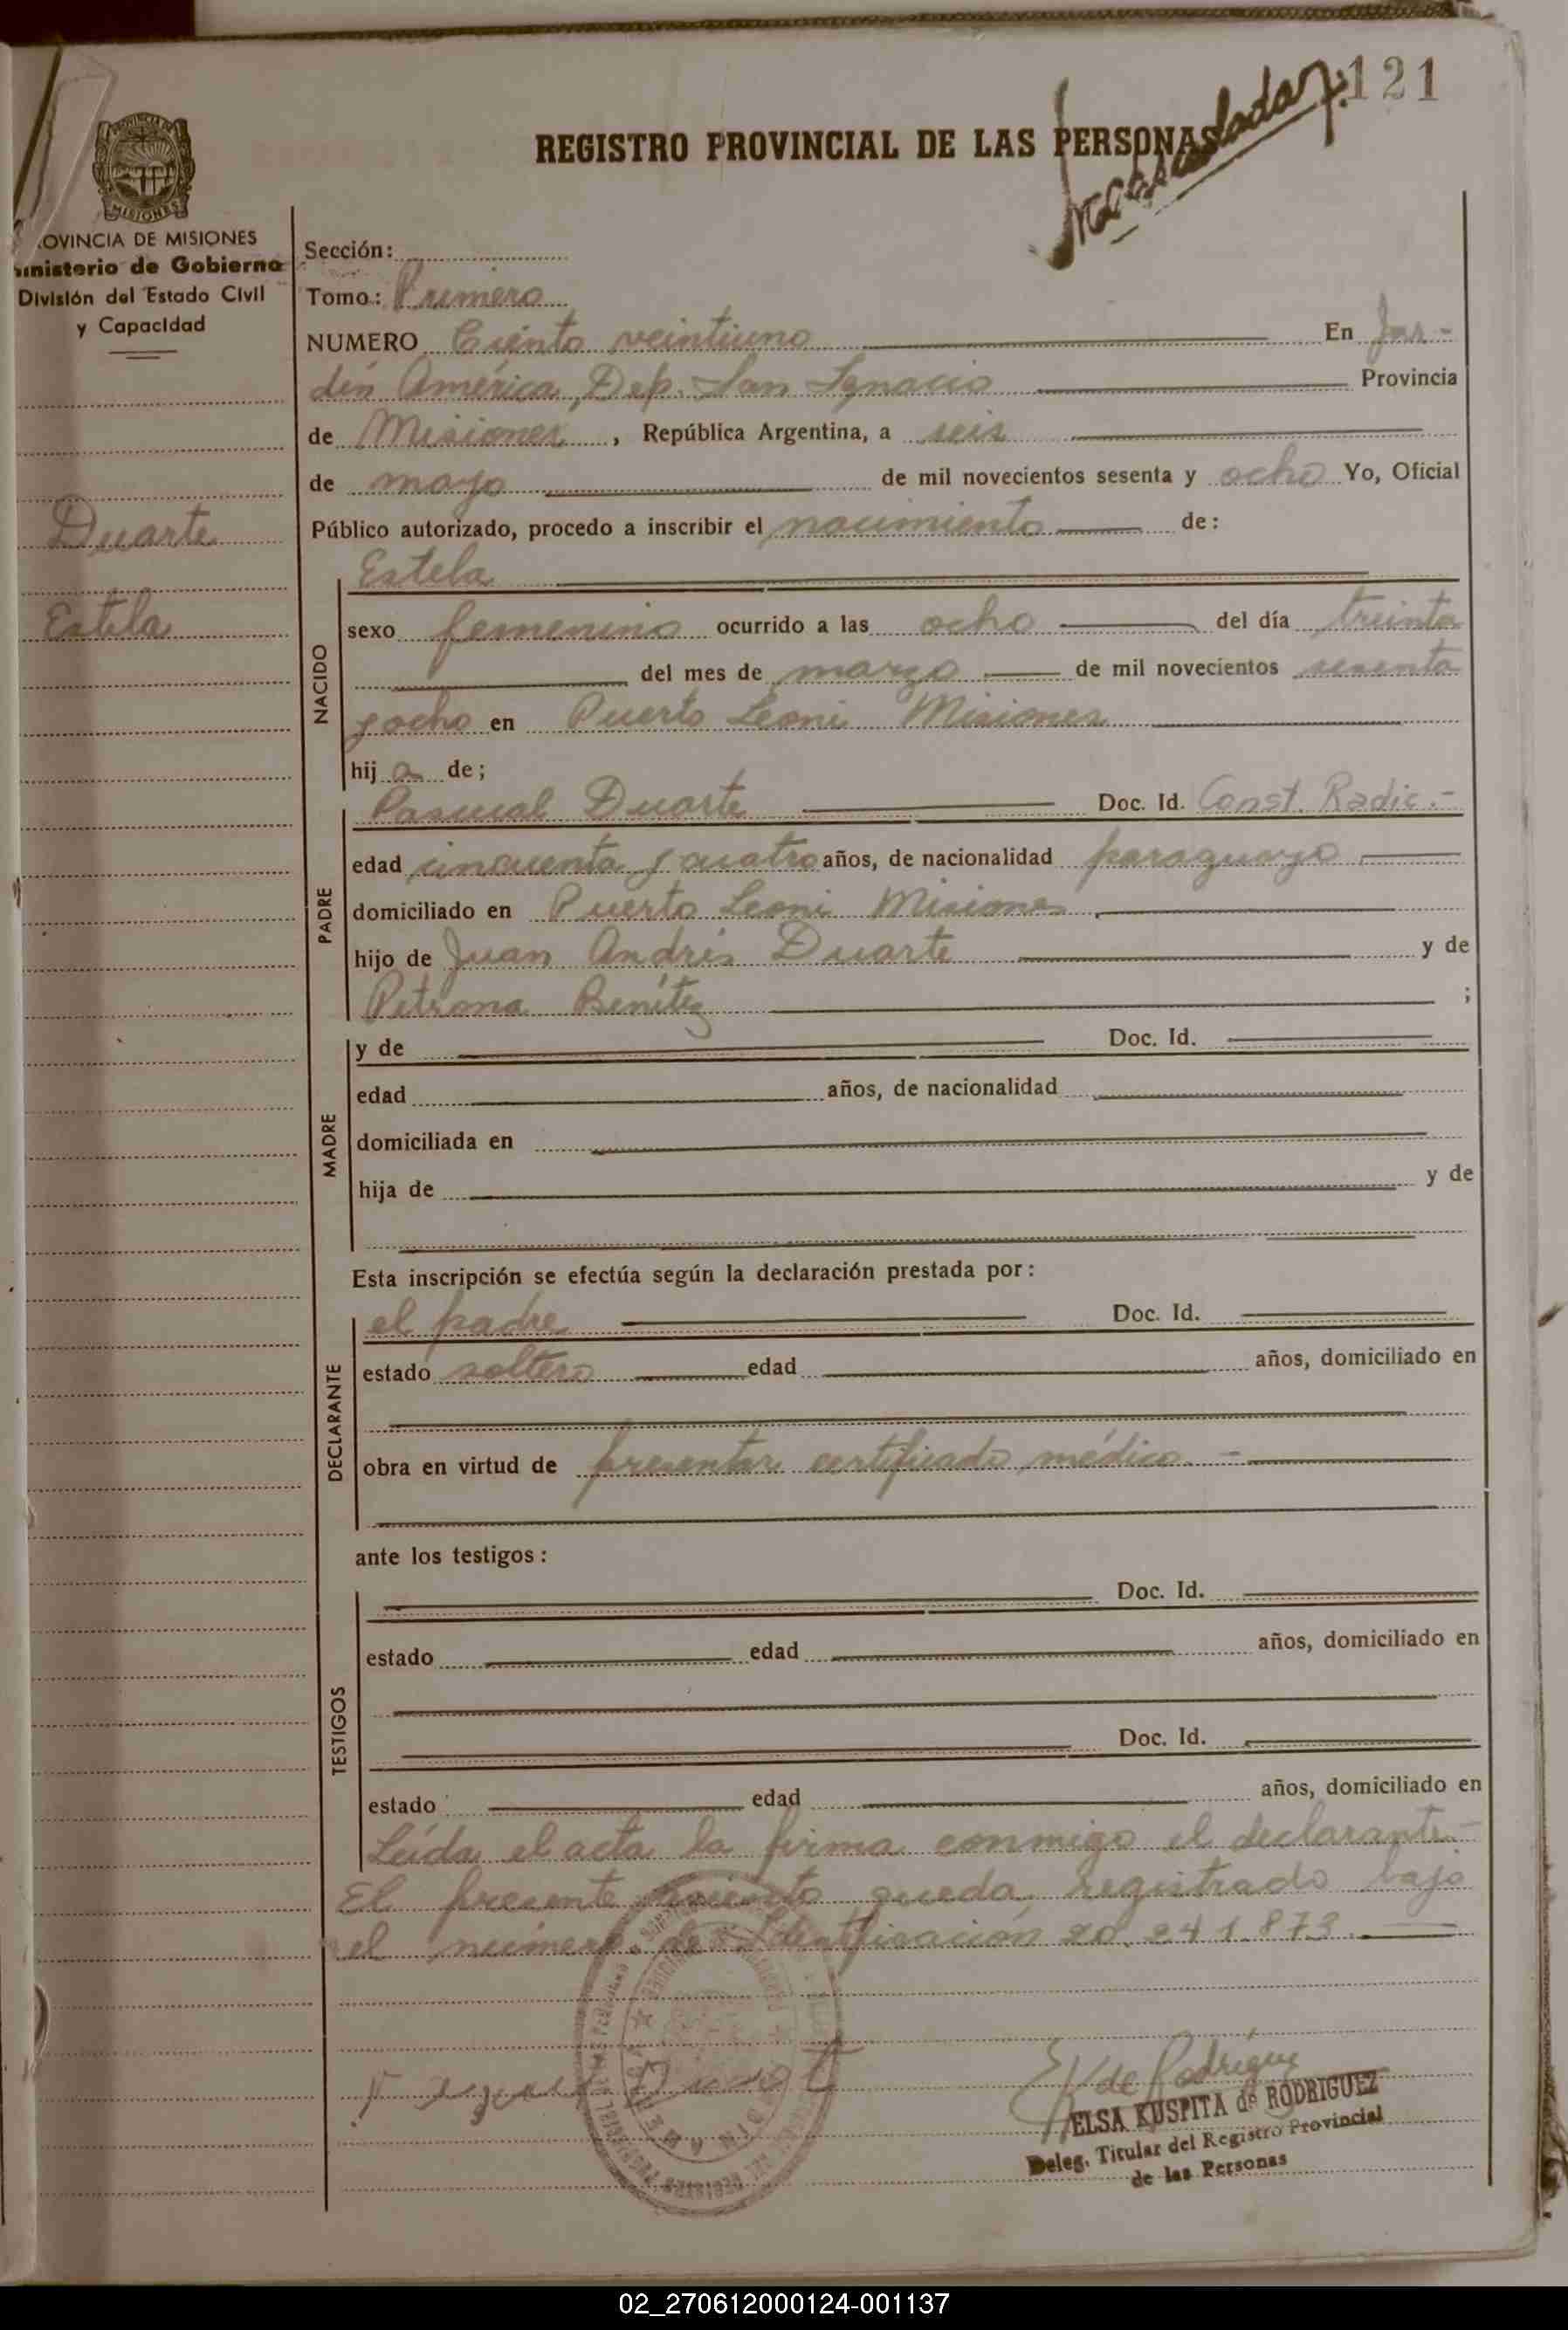 121
REGISTRO PROVINCIAL DE LAS PERSONAS
PROVINCIA DE
MISIONES
OVINCIA DE MISIONES
inisterio de Gobierno
División del Estado Civil
y Capacidad
Duarte
Estela
Sección:
Tomo: Primero
NUMERO Ciento veintiuno En Jar-
dín América, Dep. San Ignacio Provincia
de Misiones, República Argentina, a seis
de mayo de mil novecientos sesenta y ocho Yo, Oficial
Público autorizado, procedo a inscribir el nacimiento de:
NACIDO
Estela
sexo femenino ocurrido a las ocho del día treinta
del mes de marzo de mil novecientos sesenta
y ocho en Puerto Leoni Misiones
hij a de;
PADRE
Pascual Duarte Doc. Id. Const. Radic.-
edad cincuenta y cuatro años, de nacionalidad paraguayo
domiciliado en Puerto Leoni Misiones
hijo de Juan Andrés Duarte y de
Petrona Benítez ;
MADRE
y de Doc. Id.
edad años, de nacionalidad
domiciliada en
hija de y de
Esta inscripción se efectúa según la declaración prestada por:
DECLARANTE
el padre Doc. Id.
estado soltero edad años, domiciliado en
obra en virtud de presentar certificado médico.-
ante los testigos:
TESTIGOS
Doc. Id.
estado edad años, domiciliado en
Doc. Id.
estado edad años, domiciliado en
Leída el acta la firma conmigo el declarante.-
El presente asiento queda registrado bajo
el número de Identificación 20.241.873.
E K de Rodríguez
ELSA KUSPITA de RODRIGUEZ
Deleg. Titular del Registro Provincial
de las Personas
02_270612000124-001137